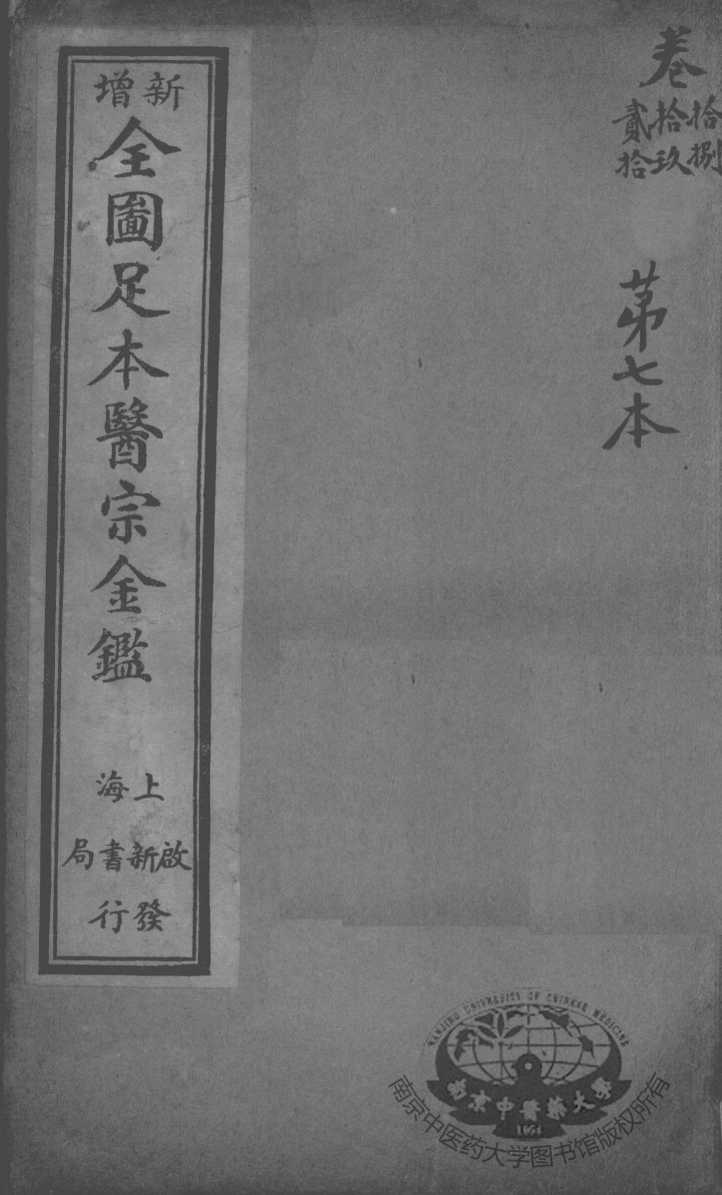 卷
拾捌
拾玖
貳拾
第七本
新增
全圖足本醫宗金鑑
上海
啟新書局
發行
NANJING UNIVERSITY OF CHINESE MEDICINE
南京中醫藥大學
1954
南京中医药大学图书馆版权所有